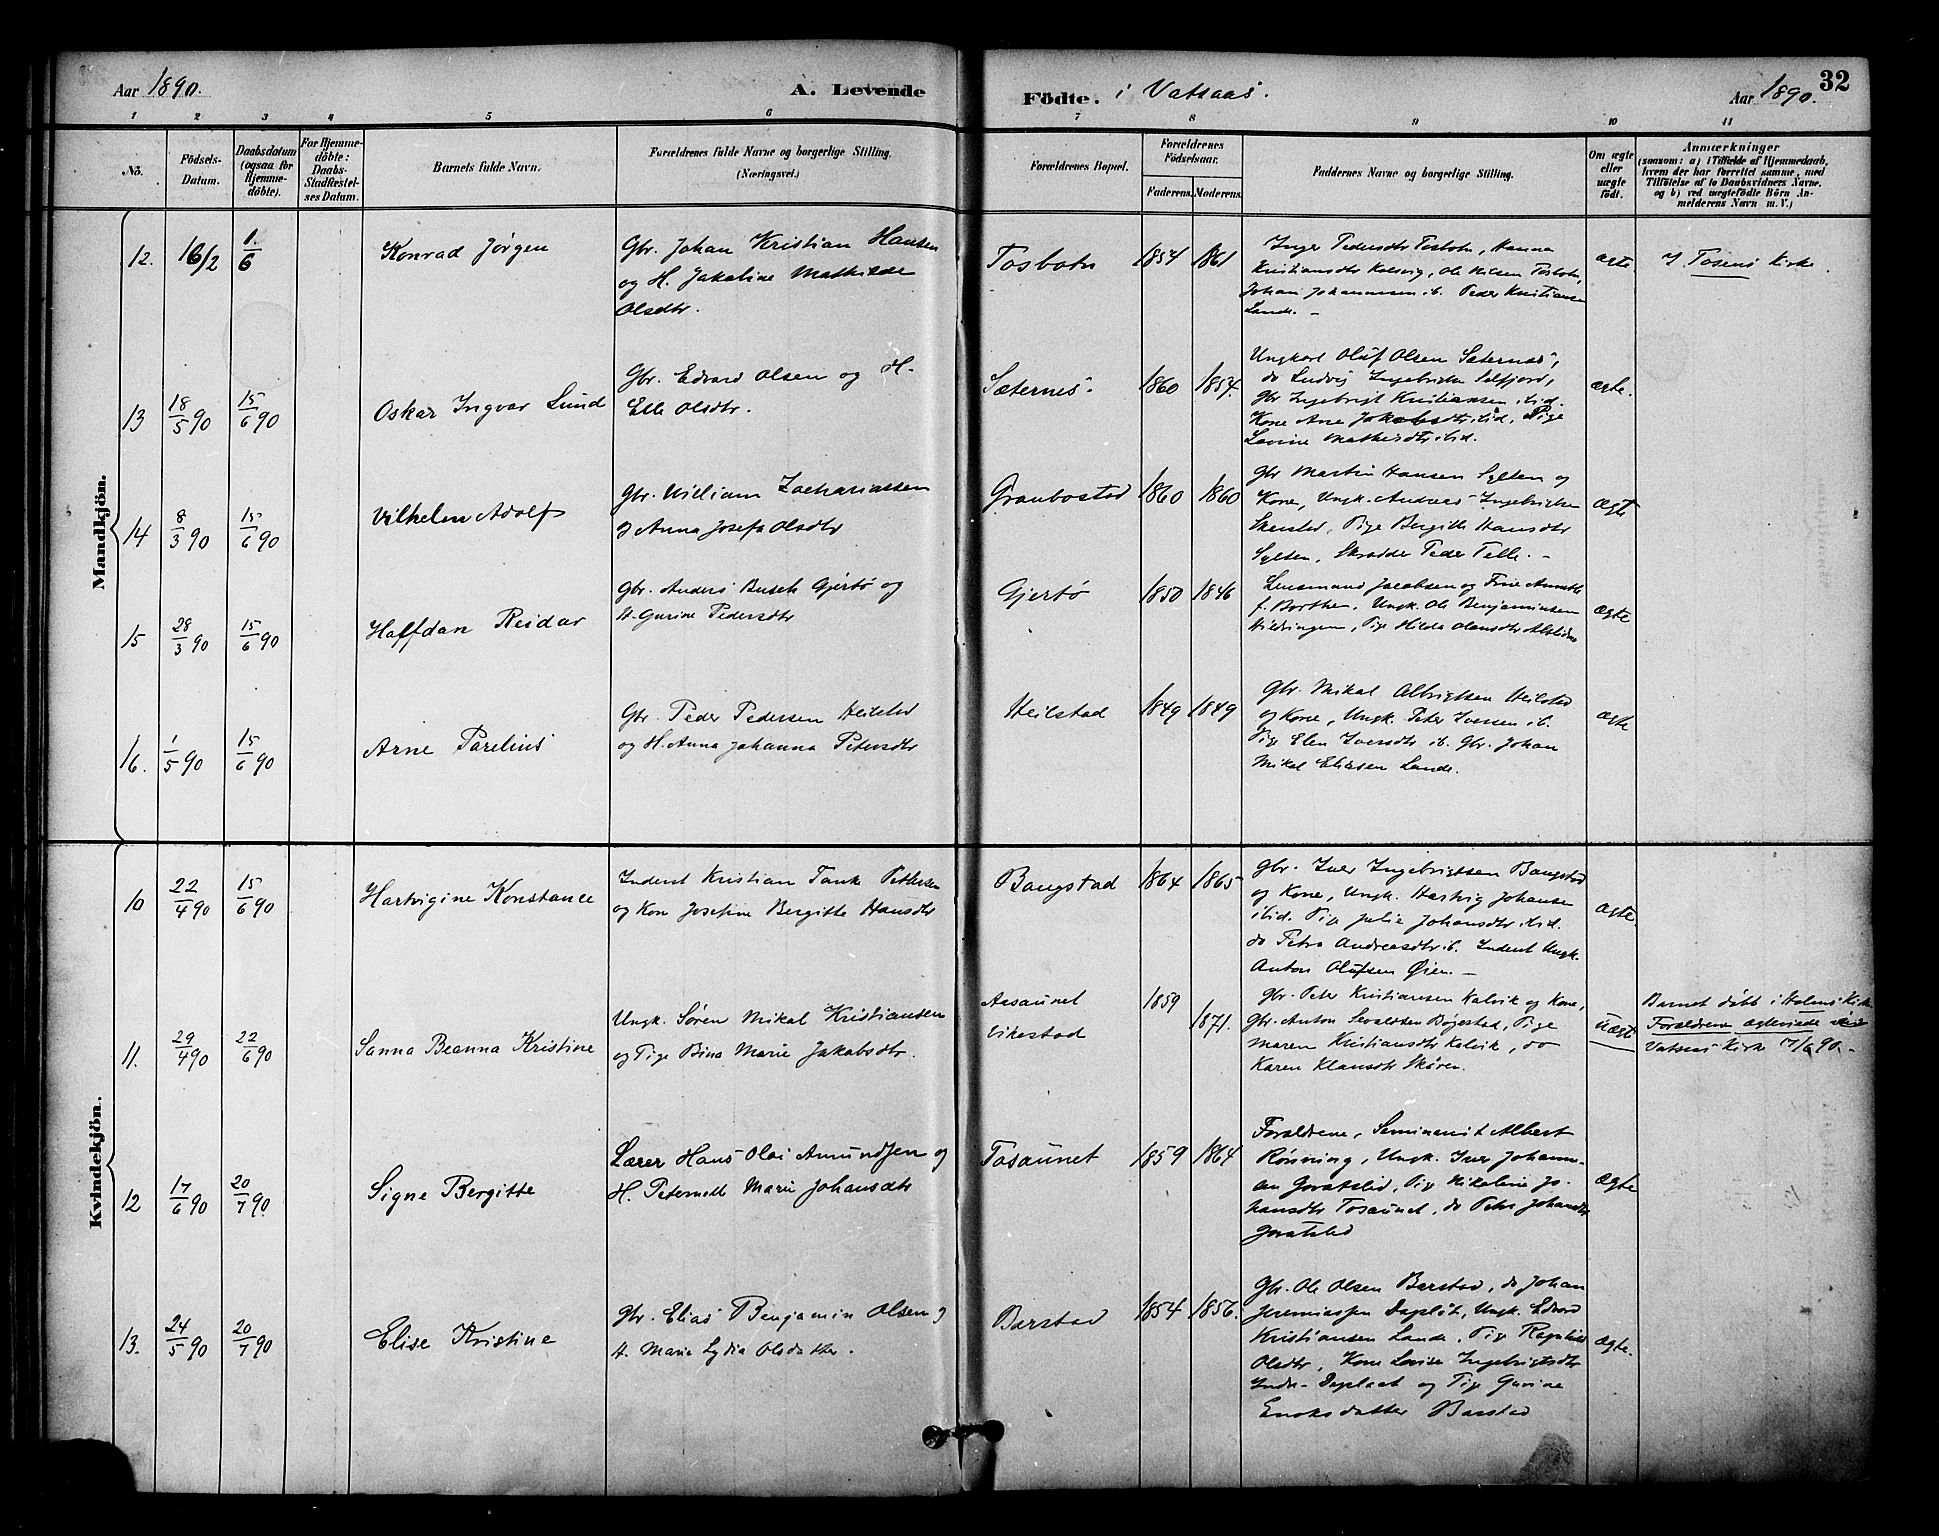 Aar 1890.
A. Levende
Födte. i Vatsaas.
Aar 1890.
32
1 2 3 4 5 6 7 8 9 10 11
No.
Födsels-
Datum.
Daabsdatum
(ogsaa for
Hjemme-
döbte).
For Hjemme-
döbte:
Daabs-
Stadfæstel-
ses Datum.
Barnets fulde Navn.
Forældrenes fulde Navne og borgerlige Stilling.
(Næringsvei.)
Forældrenes Bopæl.
Forældrenes
Födselsaar.
Faderens. Moderens.
Faddernes Navne og borgerlige Stilling.
Om ægte
eller
uægte
födt.
Anmærkninger
(saasom: a) i Tilfælde af Hjemmedaab,
hvem der har forrettet samme, med
Tilföielse af to Daabsvidners Navne.
og b) ved uægtefödte Börn An-
melderens Navn m. V.)
Mandkjön.
12. 16/2 1/6
Konrad Jørgen
Gbr. Johan Kristian Hansen
og H. Jakobine Mathilde
Olsdtr.
Tosbotn 1854 1861
Inger Pedersdtr Tosbotn, Hanna
Kristiansdtr Kalvig, Ole Nilsen Tosbotn,
Johan Johannesen ib. Peder Kristiansen
Lande. -
ægte.
I Tosens Kirke.
13 18/5 90 15/6 90
Oskar Ingvar Lund
Gbr. Edvard Olsen og H.
Elle Olsdtr.
Sæternes. 1860 1854.
Ungkarl Oluf Olsen Sæternes,
do Ludvig Ingebrigtsen Selfjord,
Gbr Ingebrigt Kristiansen ibid.
Kone Ane Jakobsdtr ibid, Pige
Lovine ibid.
ægte.
14 8/3 90 15/6 90
Vilhelm Adolf
Gbr. William Zachariassen
og Anna Josefa Olsdtr
Graabostad 1860 1860
Gbr Martin Hansen Sylten og
Kone, Ungk. Andreas Ingebrigtsen
Pige Bergitte Hansdtr
Sylten, Skrædder Peder Telle. -
ægte
15 28/3 90 15/6 90
Halfdan Reidar
Gbr. Anders Busch Gjertø og
H. Gurine Pedersdtr
Gjertø 1850 1846
Lensmand Jacobsen og Frue
f. Barthe, Ungk. Ole Benjaminsen
Hildringen, Pige Hilda Olausdtr
ægte
16. 1/5 90 15/6 90
Arne Parelius
Gbr. Peder Pedersen Heilstad
og H. Anna Johanna Petersdtr
Heilstad 1849 1849
Gbr. Mikal Albrigtsen Heilstad
og Kone, Ungk. Peter Iversen ib.
Pige Elen Iversdtr ib. Gbr. Johan
Mikal Eliasen Lande.
ægte
Kvindekjön.
10 22/4 90 15/6 90
Hartvigine Konstance
Inderst Kristian Tank Pettersen
og Kone Josefine Bergitte Hansdtr
Bangstad 1864 1865
Gbr. Iver Ingebrigtsen Bangstad
og Kone, Ungk. Hartvig Johansen
ibid. Pige Julie Johansdtr ibid.
do Petra Andreasdtr ib. Inderst Ungk.
Anton Olufsen Øien. -
ægte.
11. 29/4 90 22/6 90
Sanna Beanna Kristine
Ungk. Søren Mikal Kristiansen
og Pige Bina Marie Jakobsdtr.
Aasaunet
Vikestad
1859
1871.
Gbr. Peter Kristiansen Kalvik og Kone,
Gbr. Anton Sevaldsen Bøgestad, Pige
Maren Kristiansdtr Kalvik, do
Karen Klausdtr Skøren.
uægte
Barnet døbt i Holms Kirke
Forældrene ægteviede i
Vatsaas Kirke 17/6 90. -
12 17/6 90 20/7 90.
Signe Bergitte
Lærer Hans Olai Amundsen og
H. Peternelle Marie Johansdtr
Tosaunet 1859 1864
Forældrene, Seminarist Albert
Rönning, Ungk. Iver Johann-
sen Pige Nikoline Jo-
hansdtr Tosaunet, do Petra Johansdtr
ægte
13. 24/5 90 20/7 90
Elise Kristine
Gbr. Elias Benjamin Olsen og
H. Marie Lydia Olsdatter.
Barstad 1854 1856.
Gbr. Ole Olsen Barstad, do Johan
Jeremiassen Ungk. Edvard
Kristiansen Lande. Pige
Olsdtr, Kone Lovise Ingebrigtsdtr
og Pige Gurine
Enoksdatter Barstad
ægte.